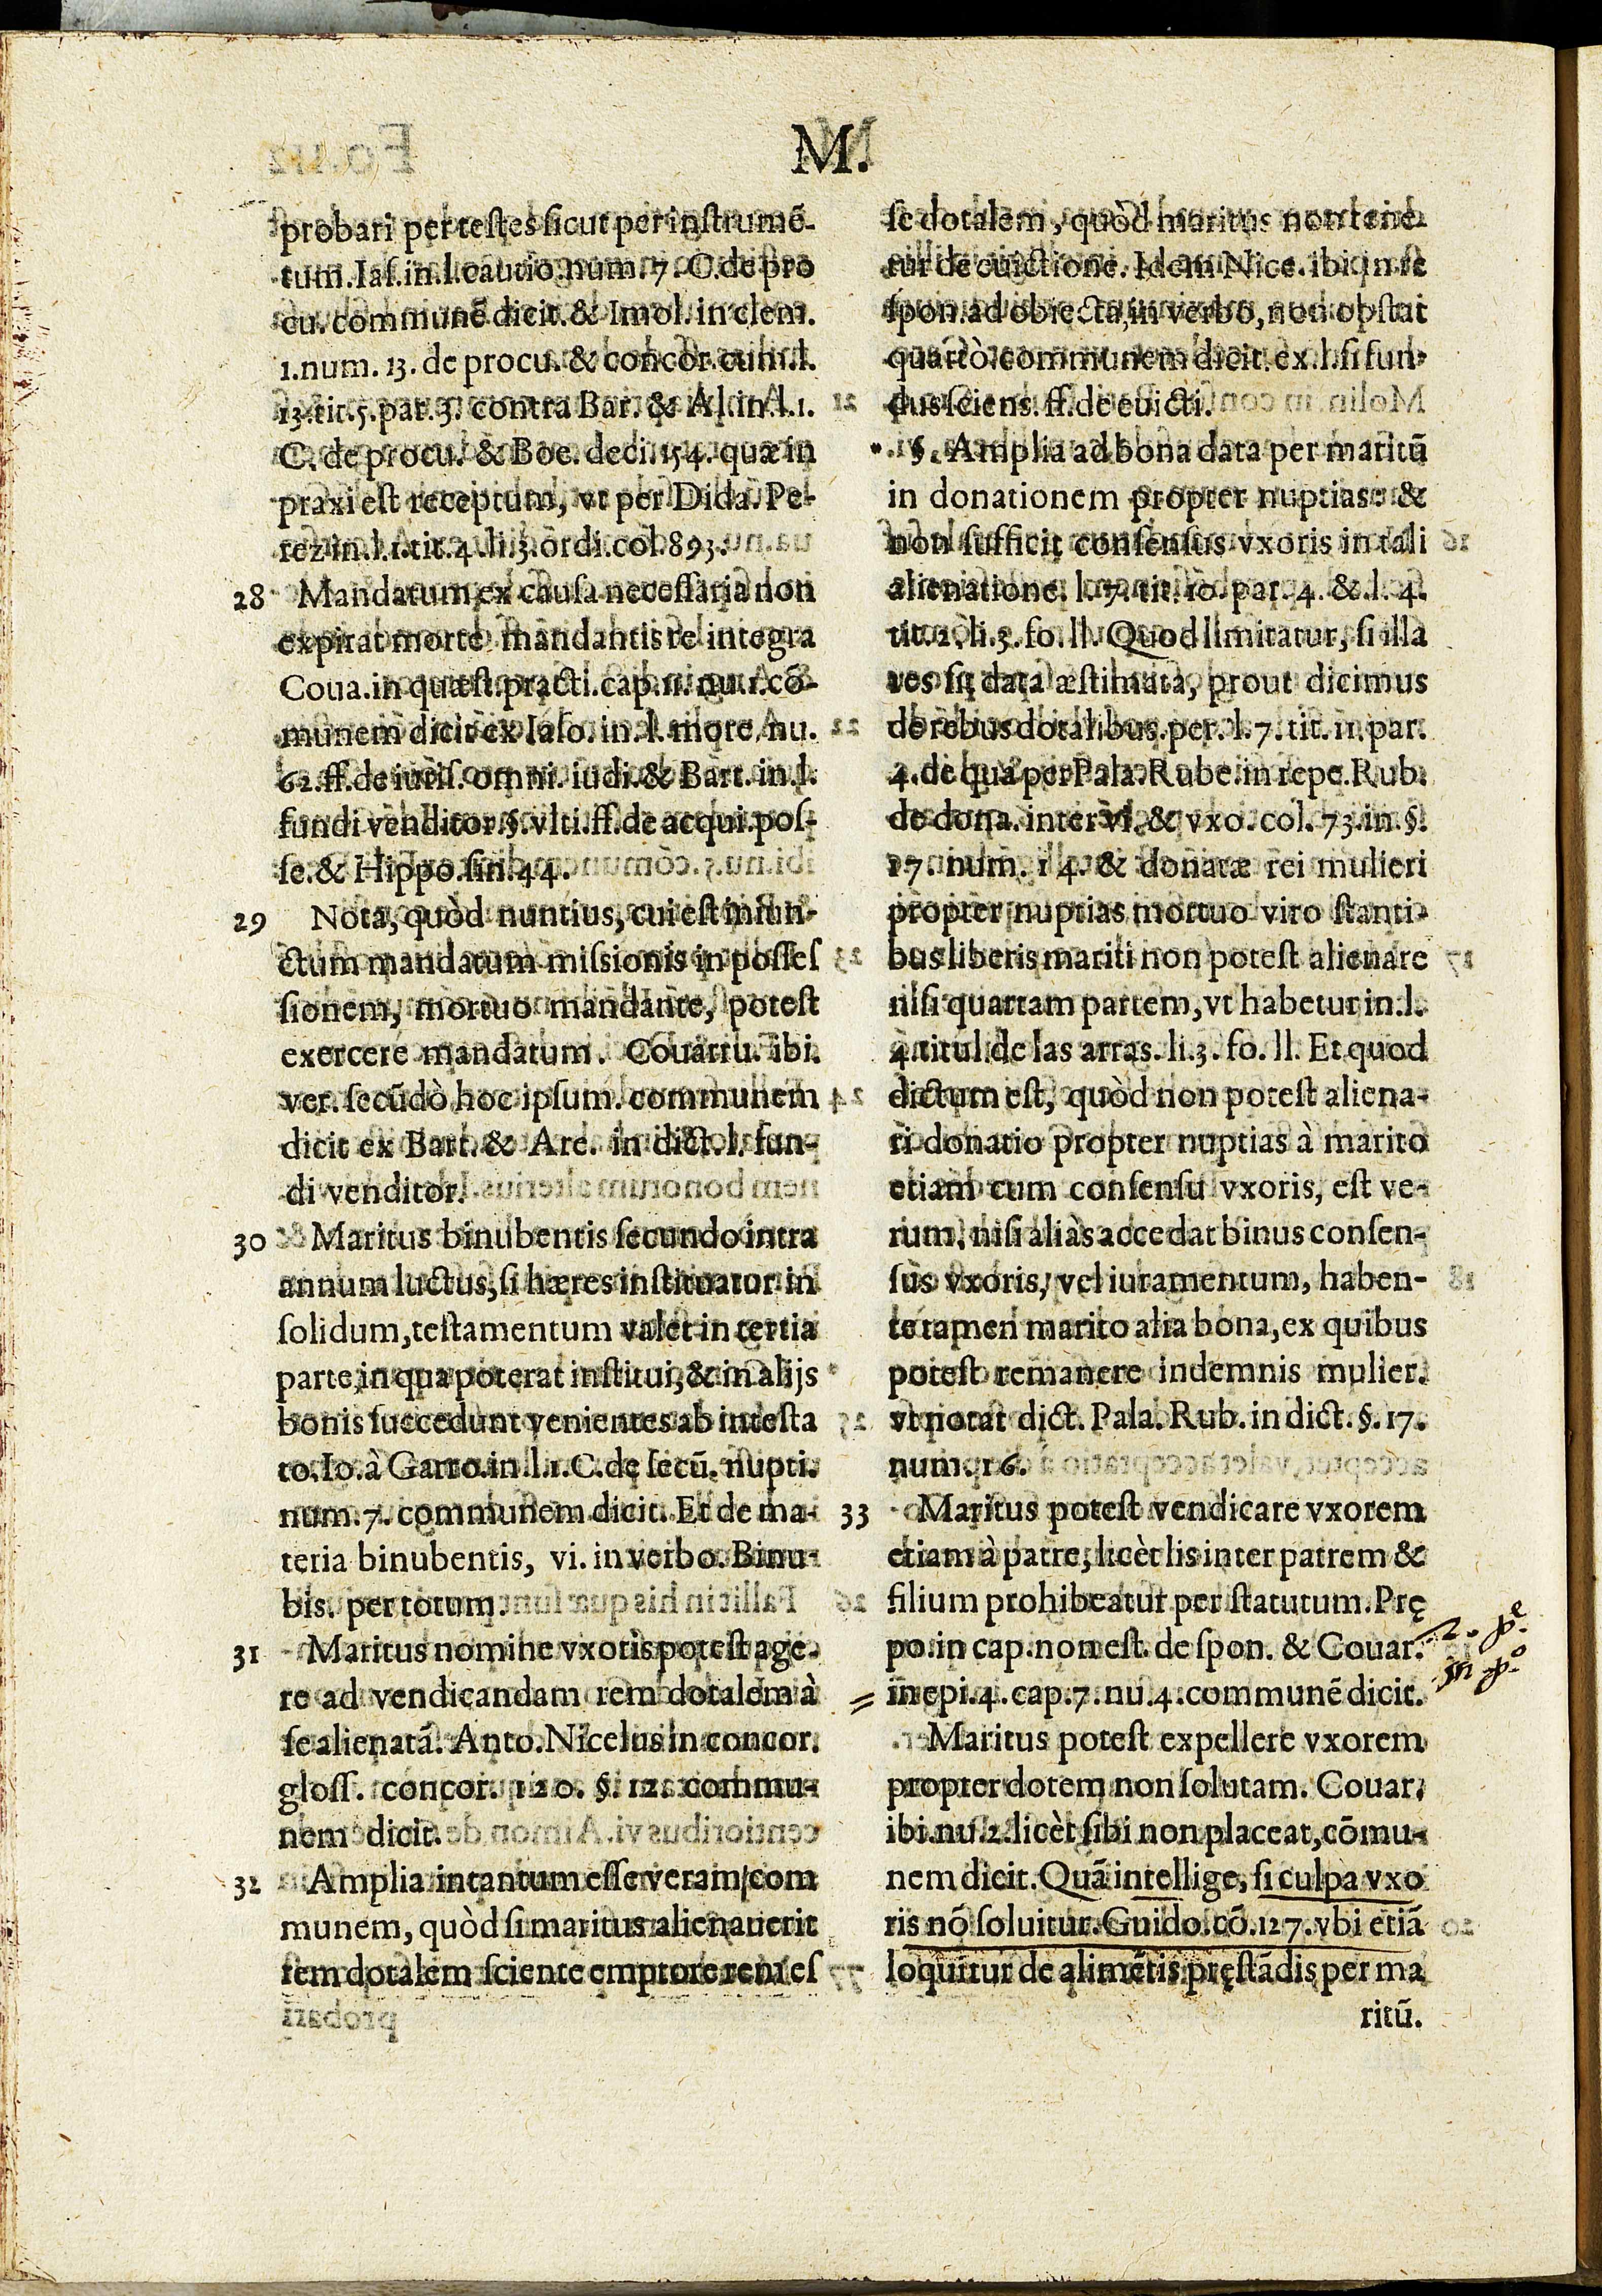 M.
probari per testes sicut per instrumē-
tum. Ias. in. l. cautio. num. 7. C. de pro
cu. communē dicit. & Imol. in clem.
1. num. 13. de procu. & concor. cum. l.
13. tit. 5. par. 3. contra Bar. & Al. in. l. 1.
C. de procu. & Boe. deci. 154. quæ in
praxi est receptum, vt per Dida. Pe-
rez in. l. 1. tit. 4. li. 3. ordi. col. 893.
28 Mandatum ex causa necessaria non
expirat morte mandantis re integra
Coua. in quæst. practi. cap. 11. nu. 1. cō-
munem dicit ex Iaso. in. l. more. nu.
62. ff. de iuris. omni. iudi. & Bart. in. l.
fundi venditor. §. vlti. ff. de acqui. pos-
se. & Hippo. sin. 44.
29 Nota, quòd nuntius, cui est iniun-
ctum mandatum missionis in posses
sionem, mortuo mandante, potest
exercere mandatum. Couarru. ibi.
ver. secūdò hoc ipsum. communem
dicit ex Bart. & Are. in dict. l. fun-
di venditor.
30 Maritus binubentis secundo intra
annum luctus, si hæres instituatur in
solidum, testamentum valet in tertia
parte in qua poterat institui, & in alijs
bonis succedunt venientes ab intesta
to. Io. à Garro. in. l. 1. C. de secū. nupti.
num. 7. communem dicit. Et de ma-
teria binubentis, vi. in verbo. Binu-
bis. per totum.
31 Maritus nomine vxoris potest age-
re ad vendicandam rem dotalem à
se alienatā. Anto. Nicelus in concor.
gloss. concor. 120. §. 12. commu-
nem dicit.
32 Amplia intantum esse veram com
munem, quòd si maritus alienauerit
rem dotalem sciente emptore rem es
se dotalem, quòd maritus non tene-
tur de euictione. Idem Nice. ibi in re
spon. ad obiecta, in verbo, non obstat
quartò. communem dicit. ex. l. si fun-
dus sciens. ff. de euicti.
§. Amplia ad bona data per maritū
in donationem propter nuptias: &
non sufficit consensus vxoris in tali
alienatione. l. 7. tit. 10. par. 4. & l. 4.
tit. 2. li. 5. fo. ll. Quod limitatur, si illa
res sit data æstimata, prout dicimus
de rebus dotalibus. per. l. 7. tit. 11. par.
4. de qua per Pala. Rube. in repe. Rub.
de dona. inter vi. & vxo. col. 73. in. §.
17. num. 14. & donatæ rei mulieri
propter nuptias mortuo viro stanti-
bus liberis mariti non potest alienare
nisi quartam partem, vt habetur in. l.
4. titul. de las arras. li. 3. fo. ll. Et quod
dictum est, quòd non potest aliena-
ri donatio propter nuptias à marito
etiam cum consensu vxoris, est ve-
rum, nisi aliàs accedat binus consen-
sus vxoris, vel iuramentum, haben-
te tamen marito alia bona, ex quibus
potest remanere indemnis mulier.
vt notat dict. Pala. Rub. in dict. §. 17.
num. 16.
33 Maritus potest vendicare vxorem
etiam à patre, licèt lis inter patrem &
filium prohibeatur per statutum. Prę
po. in cap. non est. de spon. & Couar.
in epi. 4. cap. 7. nu. 4. communē dicit.
Maritus potest expellere vxorem
propter dotem non solutam. Couar.
ibi. nu. 2. licèt sibi non placeat, cōmu-
nem dicit. Quā intellige, si culpa vxo
ris nō soluitur. Guido. cō. 127. vbi etiā
loquitur de alimētis pręstādis per ma
ritū.